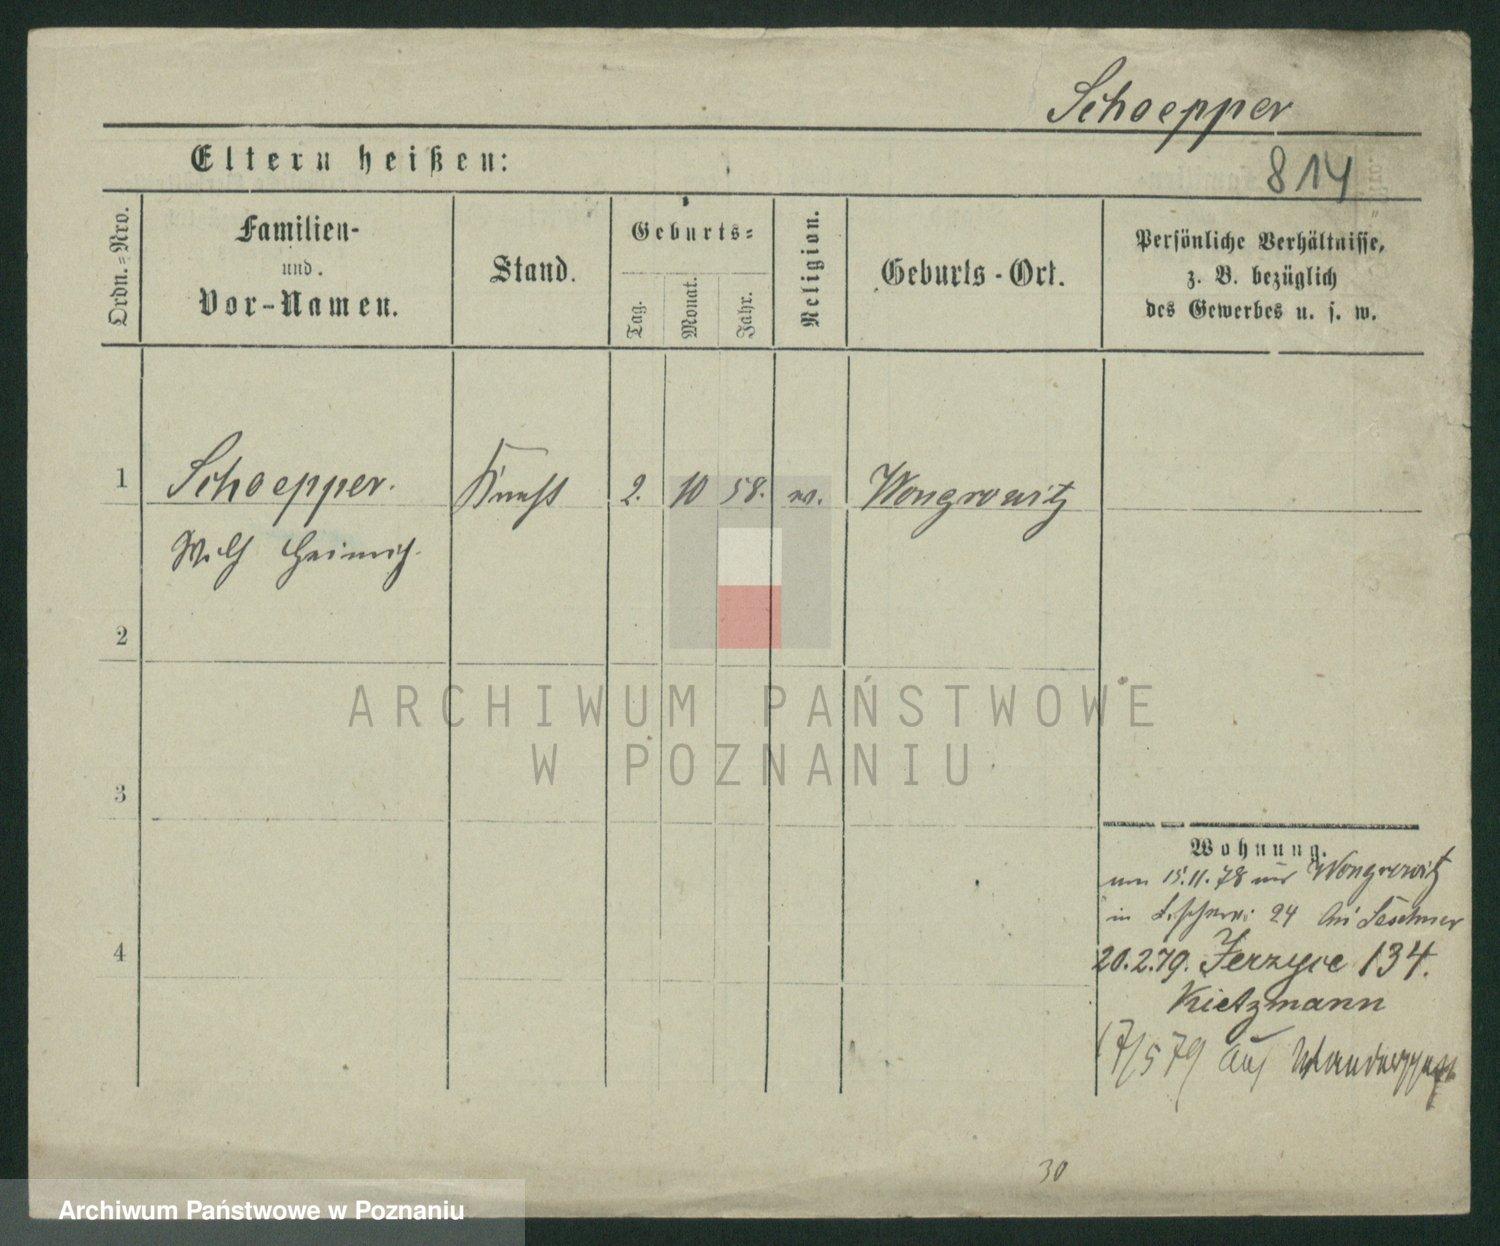 Schoepper
Eltern heißen:
814
Ordn.=Nro.
Familien-
und
Vor-Namen.
Stand.
Geburts=
Tag.
Monat.
Jahr.
Religion.
Geburts-Ort.
Persönliche Verhältnisse,
z. B. bezüglich
des Gewerbes u. s. w.
1 Schoepper. Knecht 2. 10 58. Wongrowitz
Wilh Heinrich
2
ARCHIWUM PAŃSTWOWE
W POZNANIU
3
Wohnung.
15.11.78 aus Wongrowitz
in 24 bei
4
20.2.79. Jerzyce 134.
Kietzmann
17/5 79 auf Wanderschaft
30
Archiwum Państwowe w Poznaniu